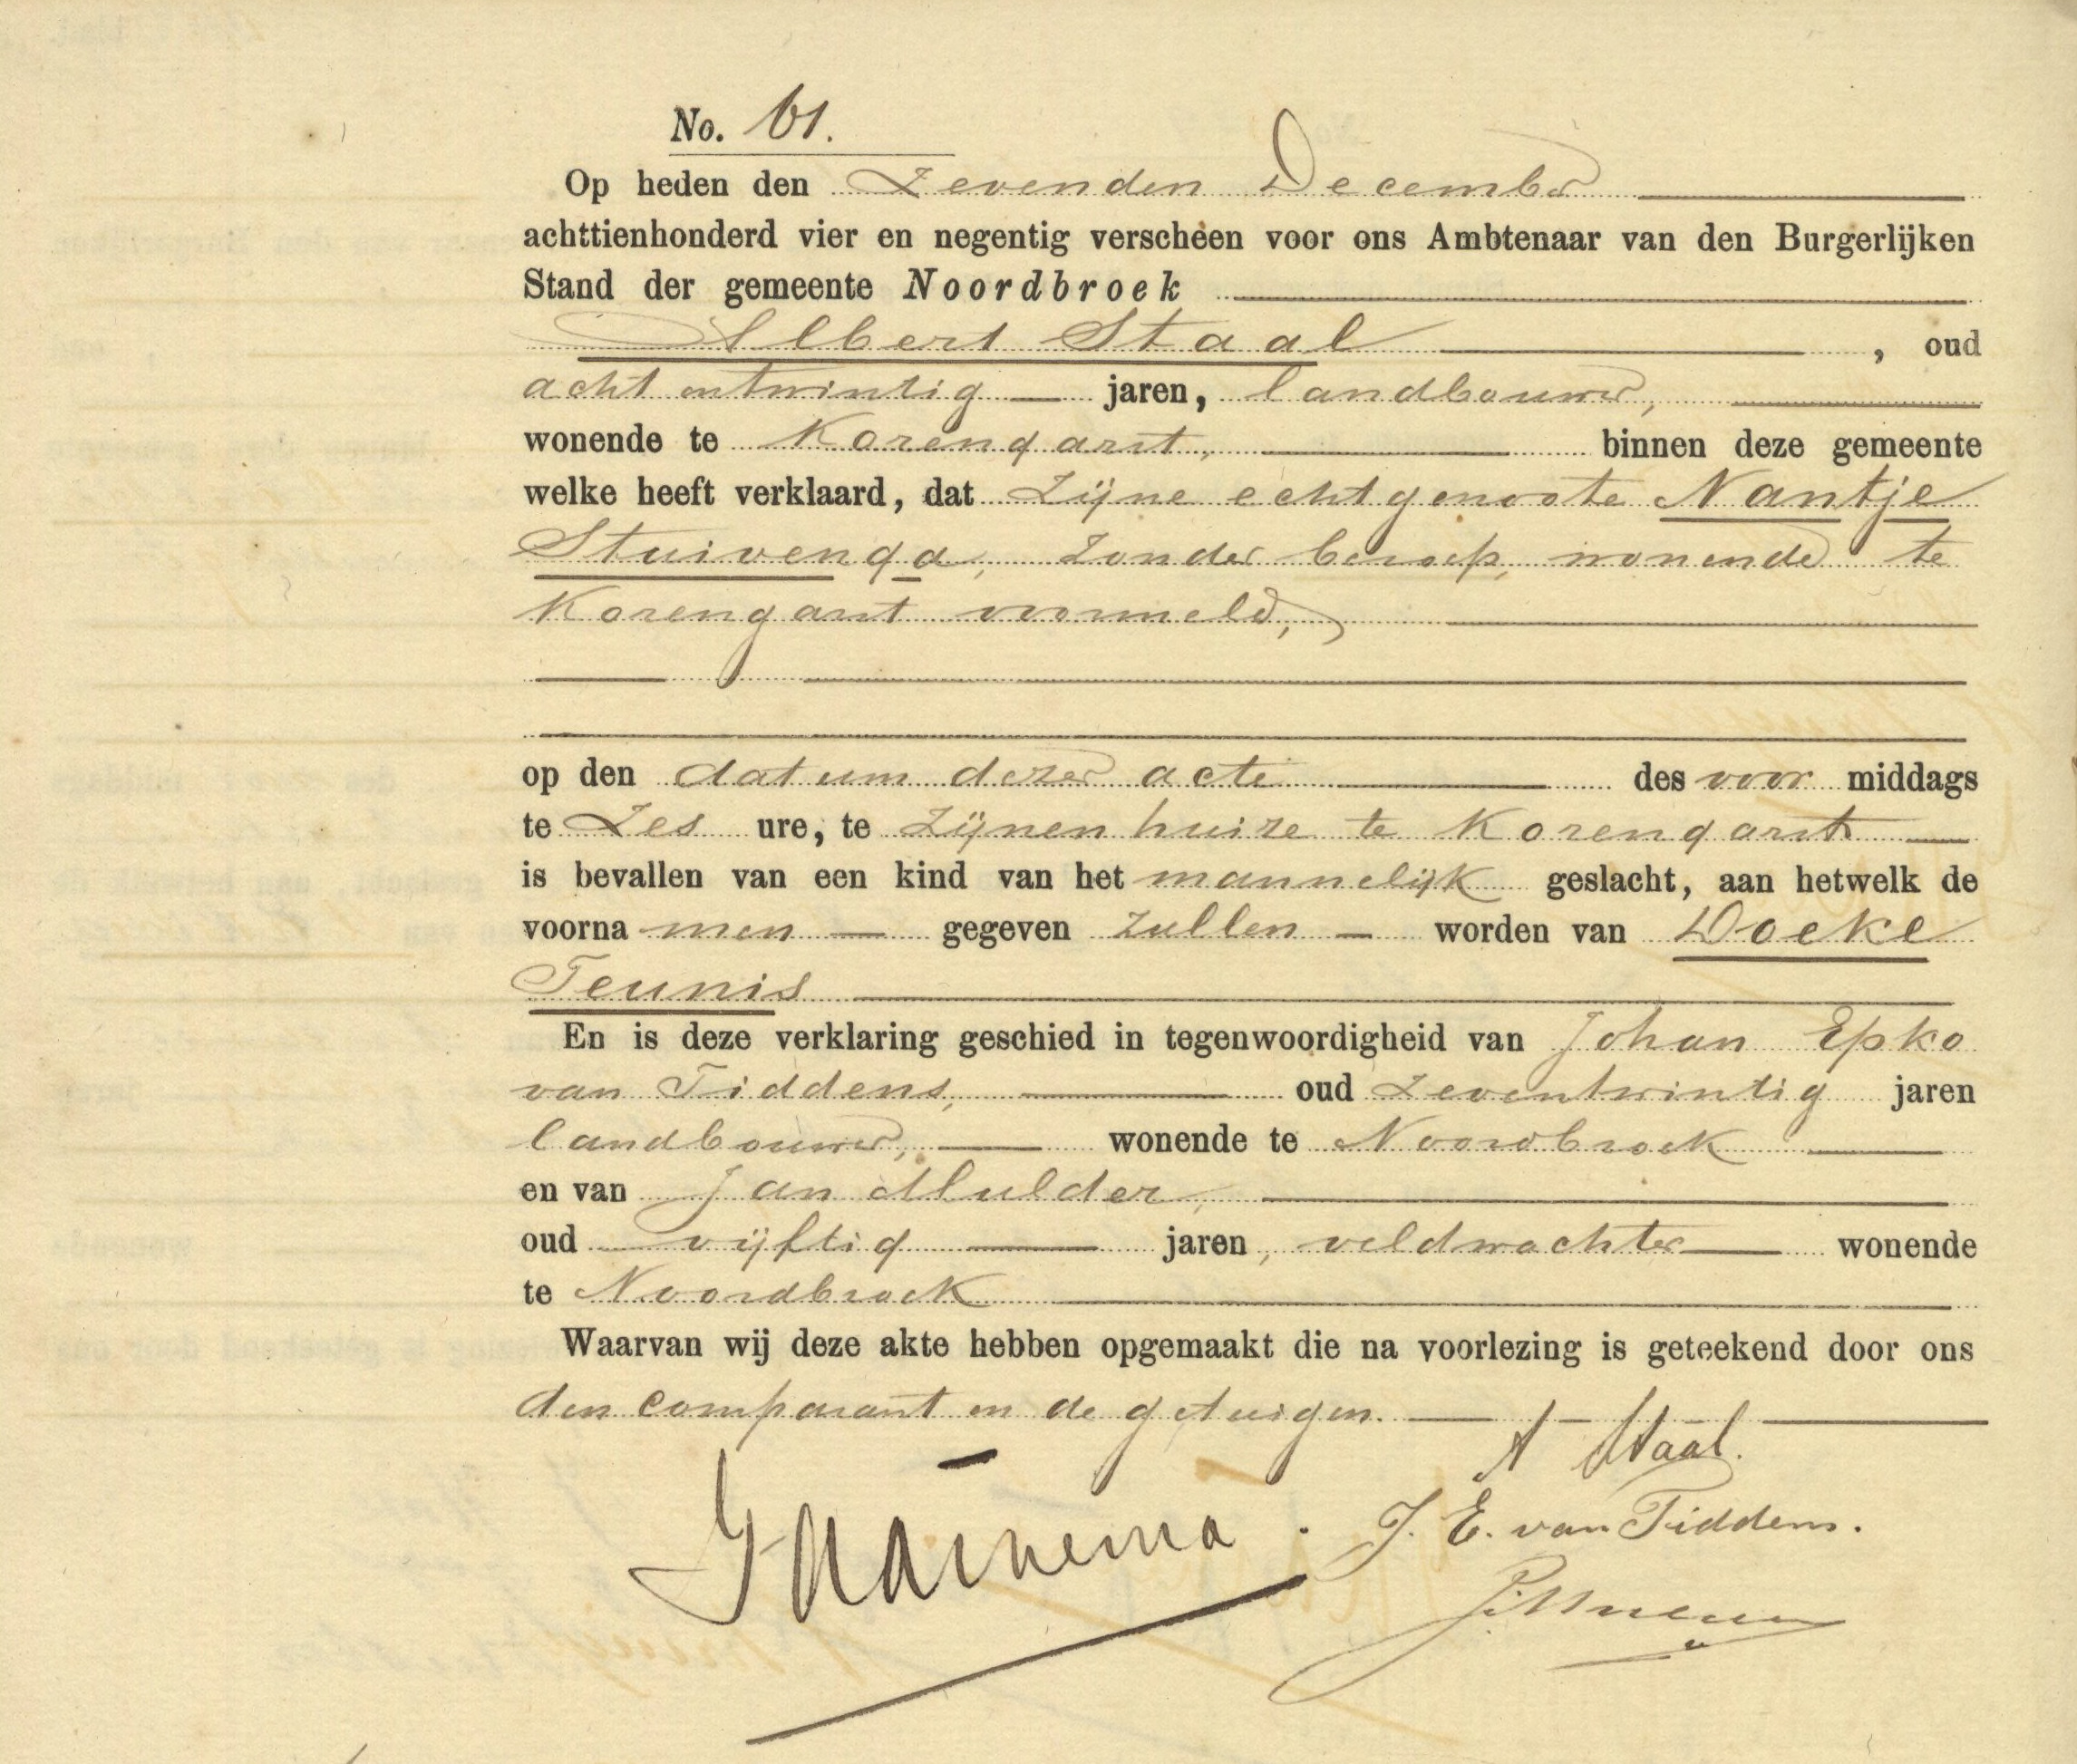 No. 61.
Op heden den Zevenden December
achttienhonderd vier en negentig verscheen voor ons Ambtenaar van den Burgerlijken
Stand der gemeente Noordbroek
Albert Staal, oud
acht en twintig jaren, landbouwer,
wonende te Korengarst, binnen deze gemeente
welke heeft verklaard, dat Zijne echtgenoote Nantje
Stuivenga, zonder beroep, wonende te
Korengarst voormeld,
op den datum dezer acte des voor middags
te Zes ure, te Zijnen huize te Korengarst
is bevallen van een kind van het mannelijk geslacht, aan hetwelk de
voornamen gegeven zullen worden van Doeke
Teunis
En is deze verklaring geschied in tegenwoordigheid van Johan Epko
van Tiddens, oud zeventwintig jaren
landbouwer, wonende te Noordbroek
en van Jan Mulder,
oud vijftig jaren, veldwachter wonende
te Noordbroek
Waarvan wij deze akte hebben opgemaakt die na voorlezing is geteekend door ons
den comparant en de getuigen.
A Staal.
J. E. van Tiddens.